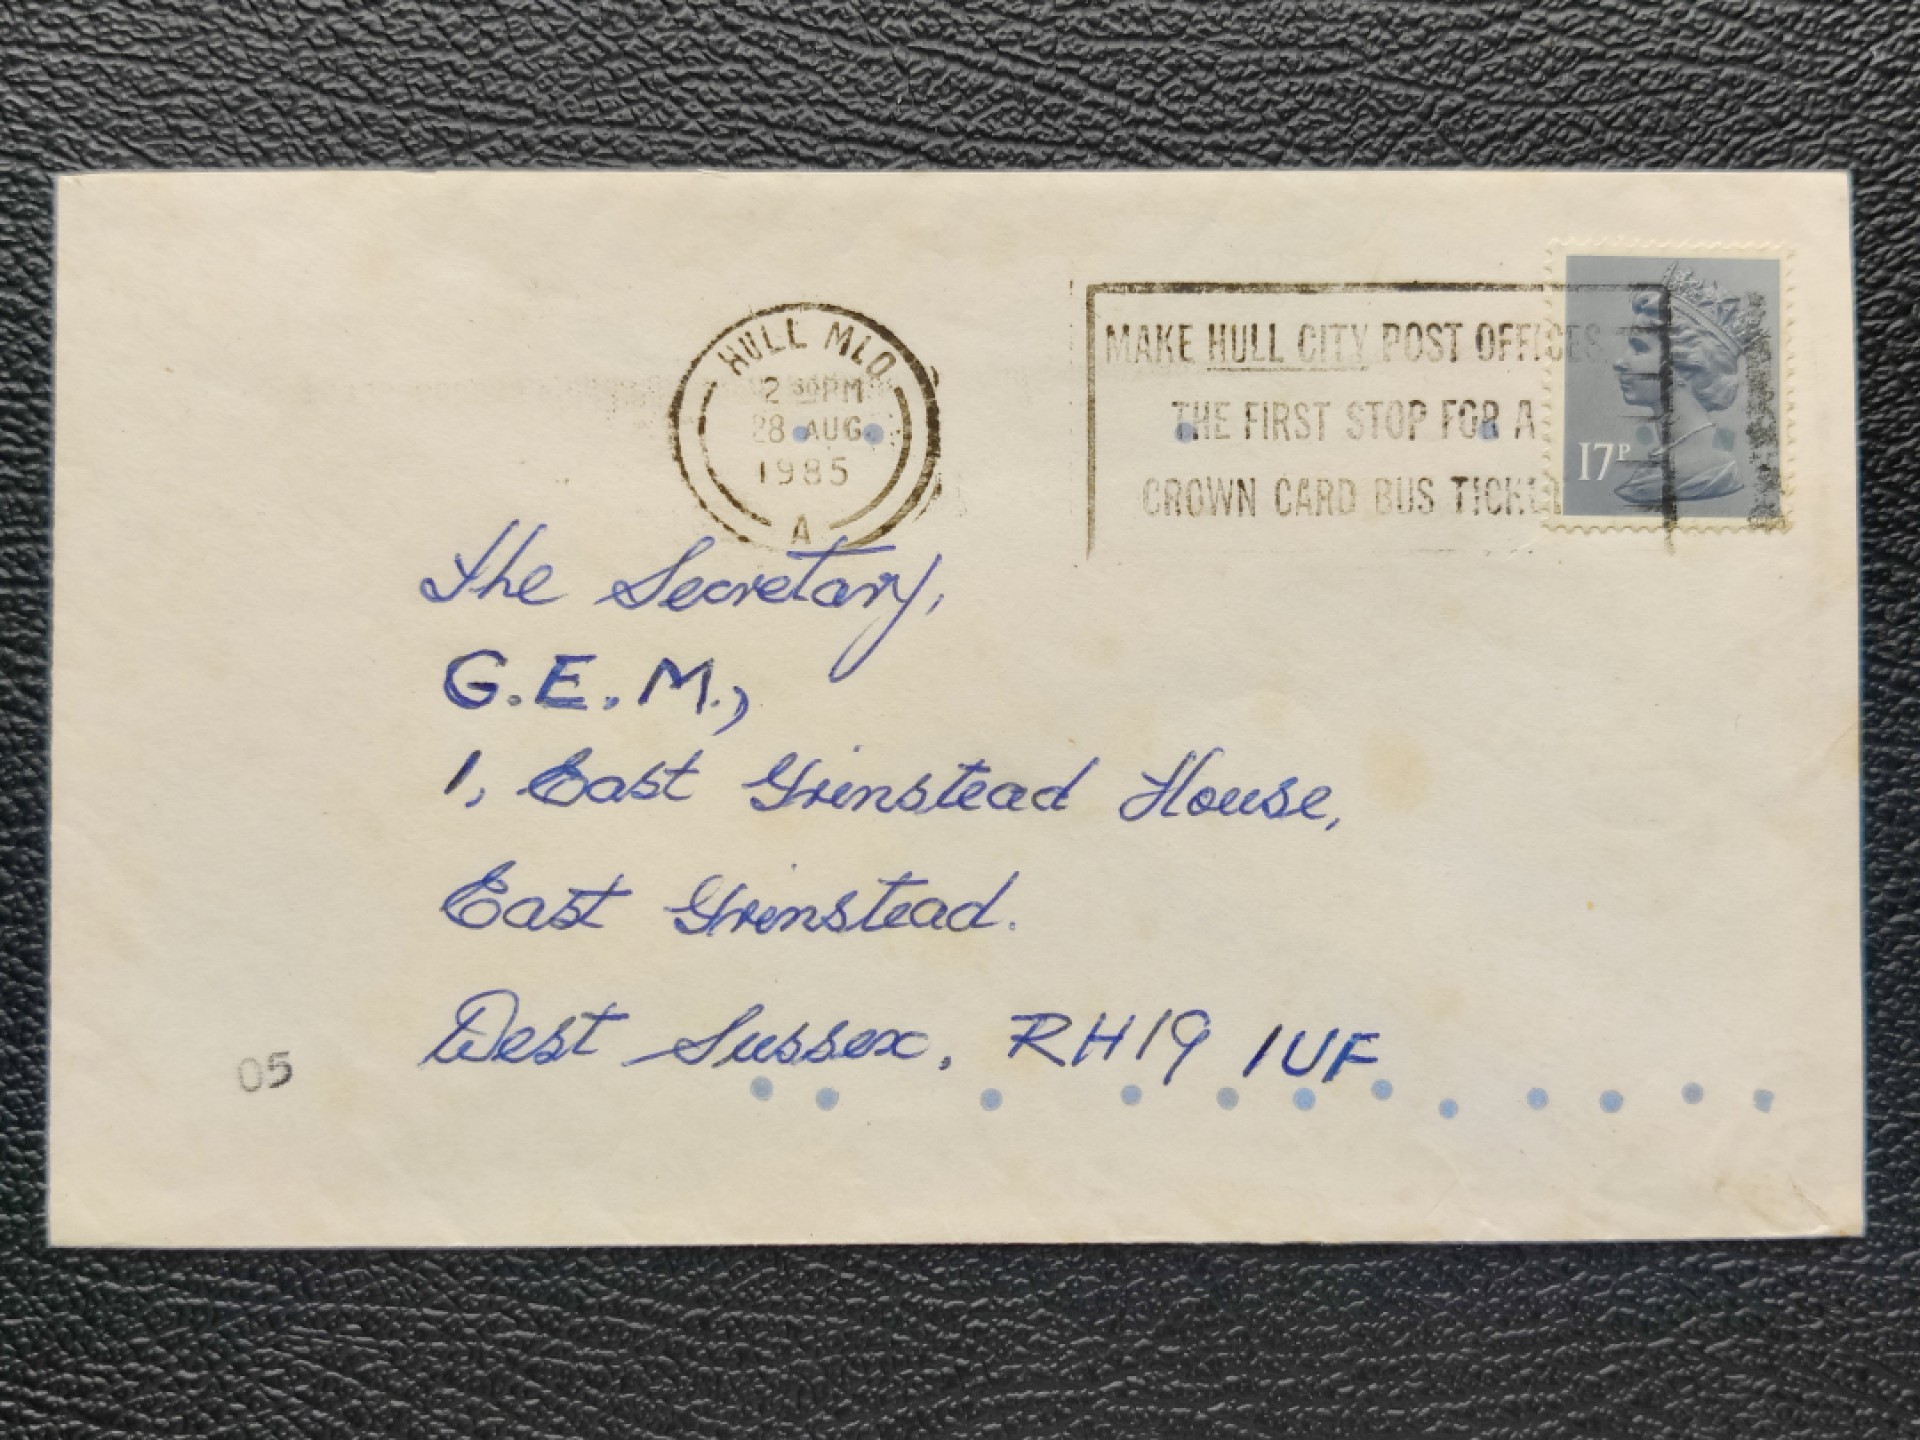 HULL MLO
2 30PM
28 AUG
1985
A
MAKE HULL CITY POST OFFICES
THE FIRST STOP FOR A
CROWN CARD BUS TICKET
17P
The Secretary,
G.E.M.,
1, East Grinstead House,
East Grinstead.
West Sussex, RH19 1UF
05